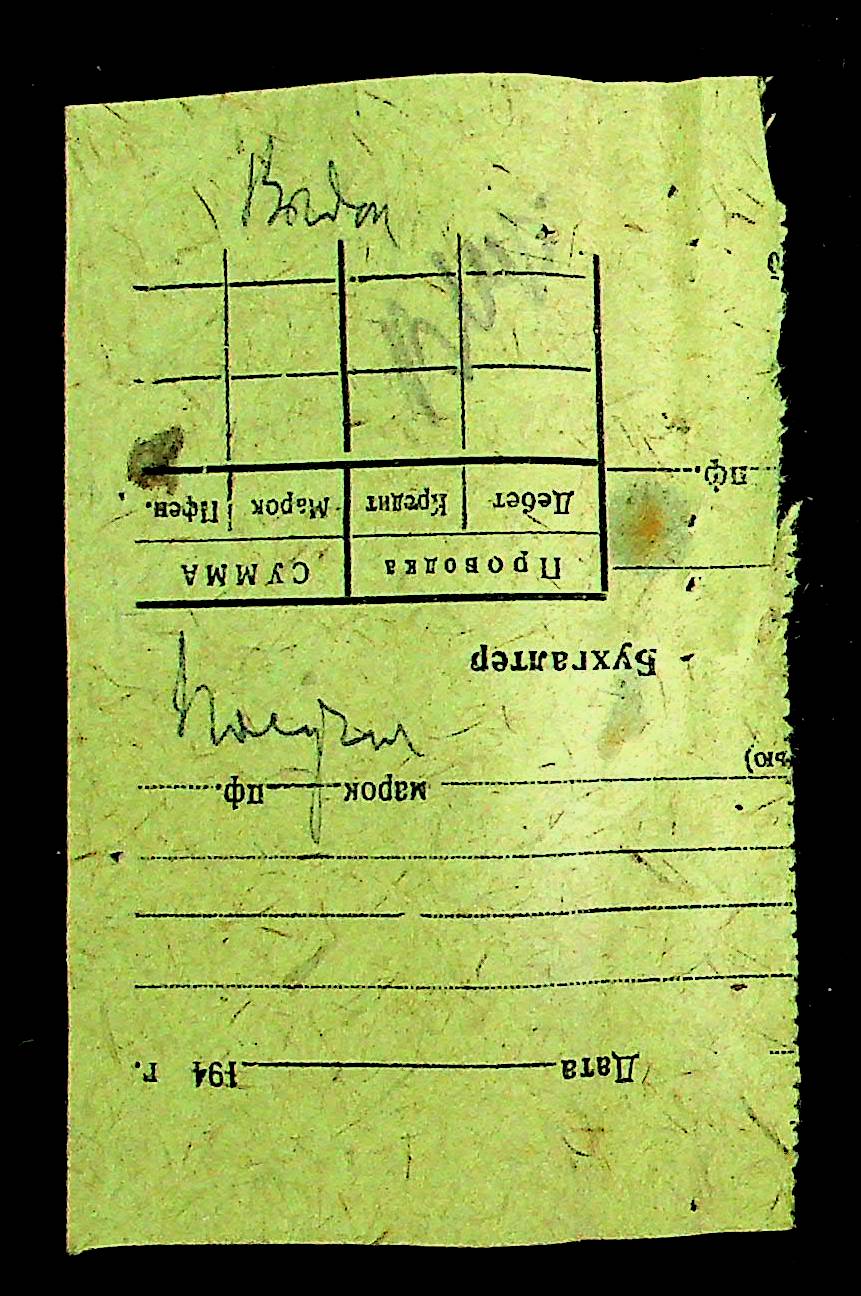 Дата 194 г.
марок пф.
ью)
Бухгалтер
Проводка СУММА
Дебет Кредит Марок Пфен.
пф.